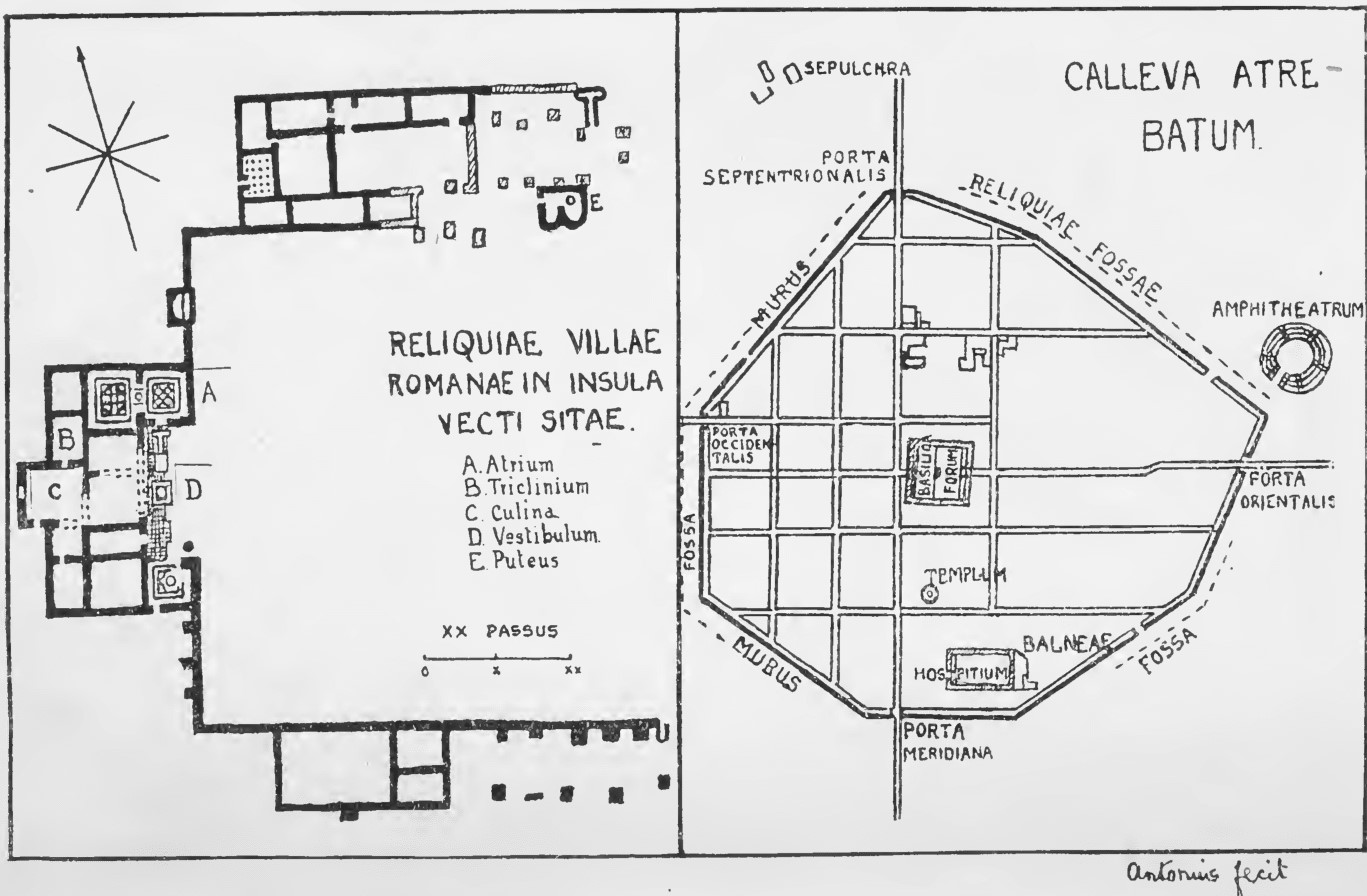 RELIQUIAE VILLAE
ROMANAE IN INSULA
VECTI SITAE.
A. Atrium
B. Triclinium
C. Culina
D. Vestibulum.
E. Puteus
XX PASSUS
0 X XX
A
B
C
D
E
CALLEVA ATRE-
BATUM.
SEPULCHRA
PORTA
SEPTENTRIONALIS
RELIQUIAE FOSSAE
MURUS
AMPHITHEATRUM
PORTA
OCCIDEN-
TALIS
BASILICA
FORUM
PORTA
ORIENTALIS
FOSSA
TEMPLUM
BALNEAE
HOSPITIUM
FOSSA
MURUS
PORTA
MERIDIANA
Antonius fecit